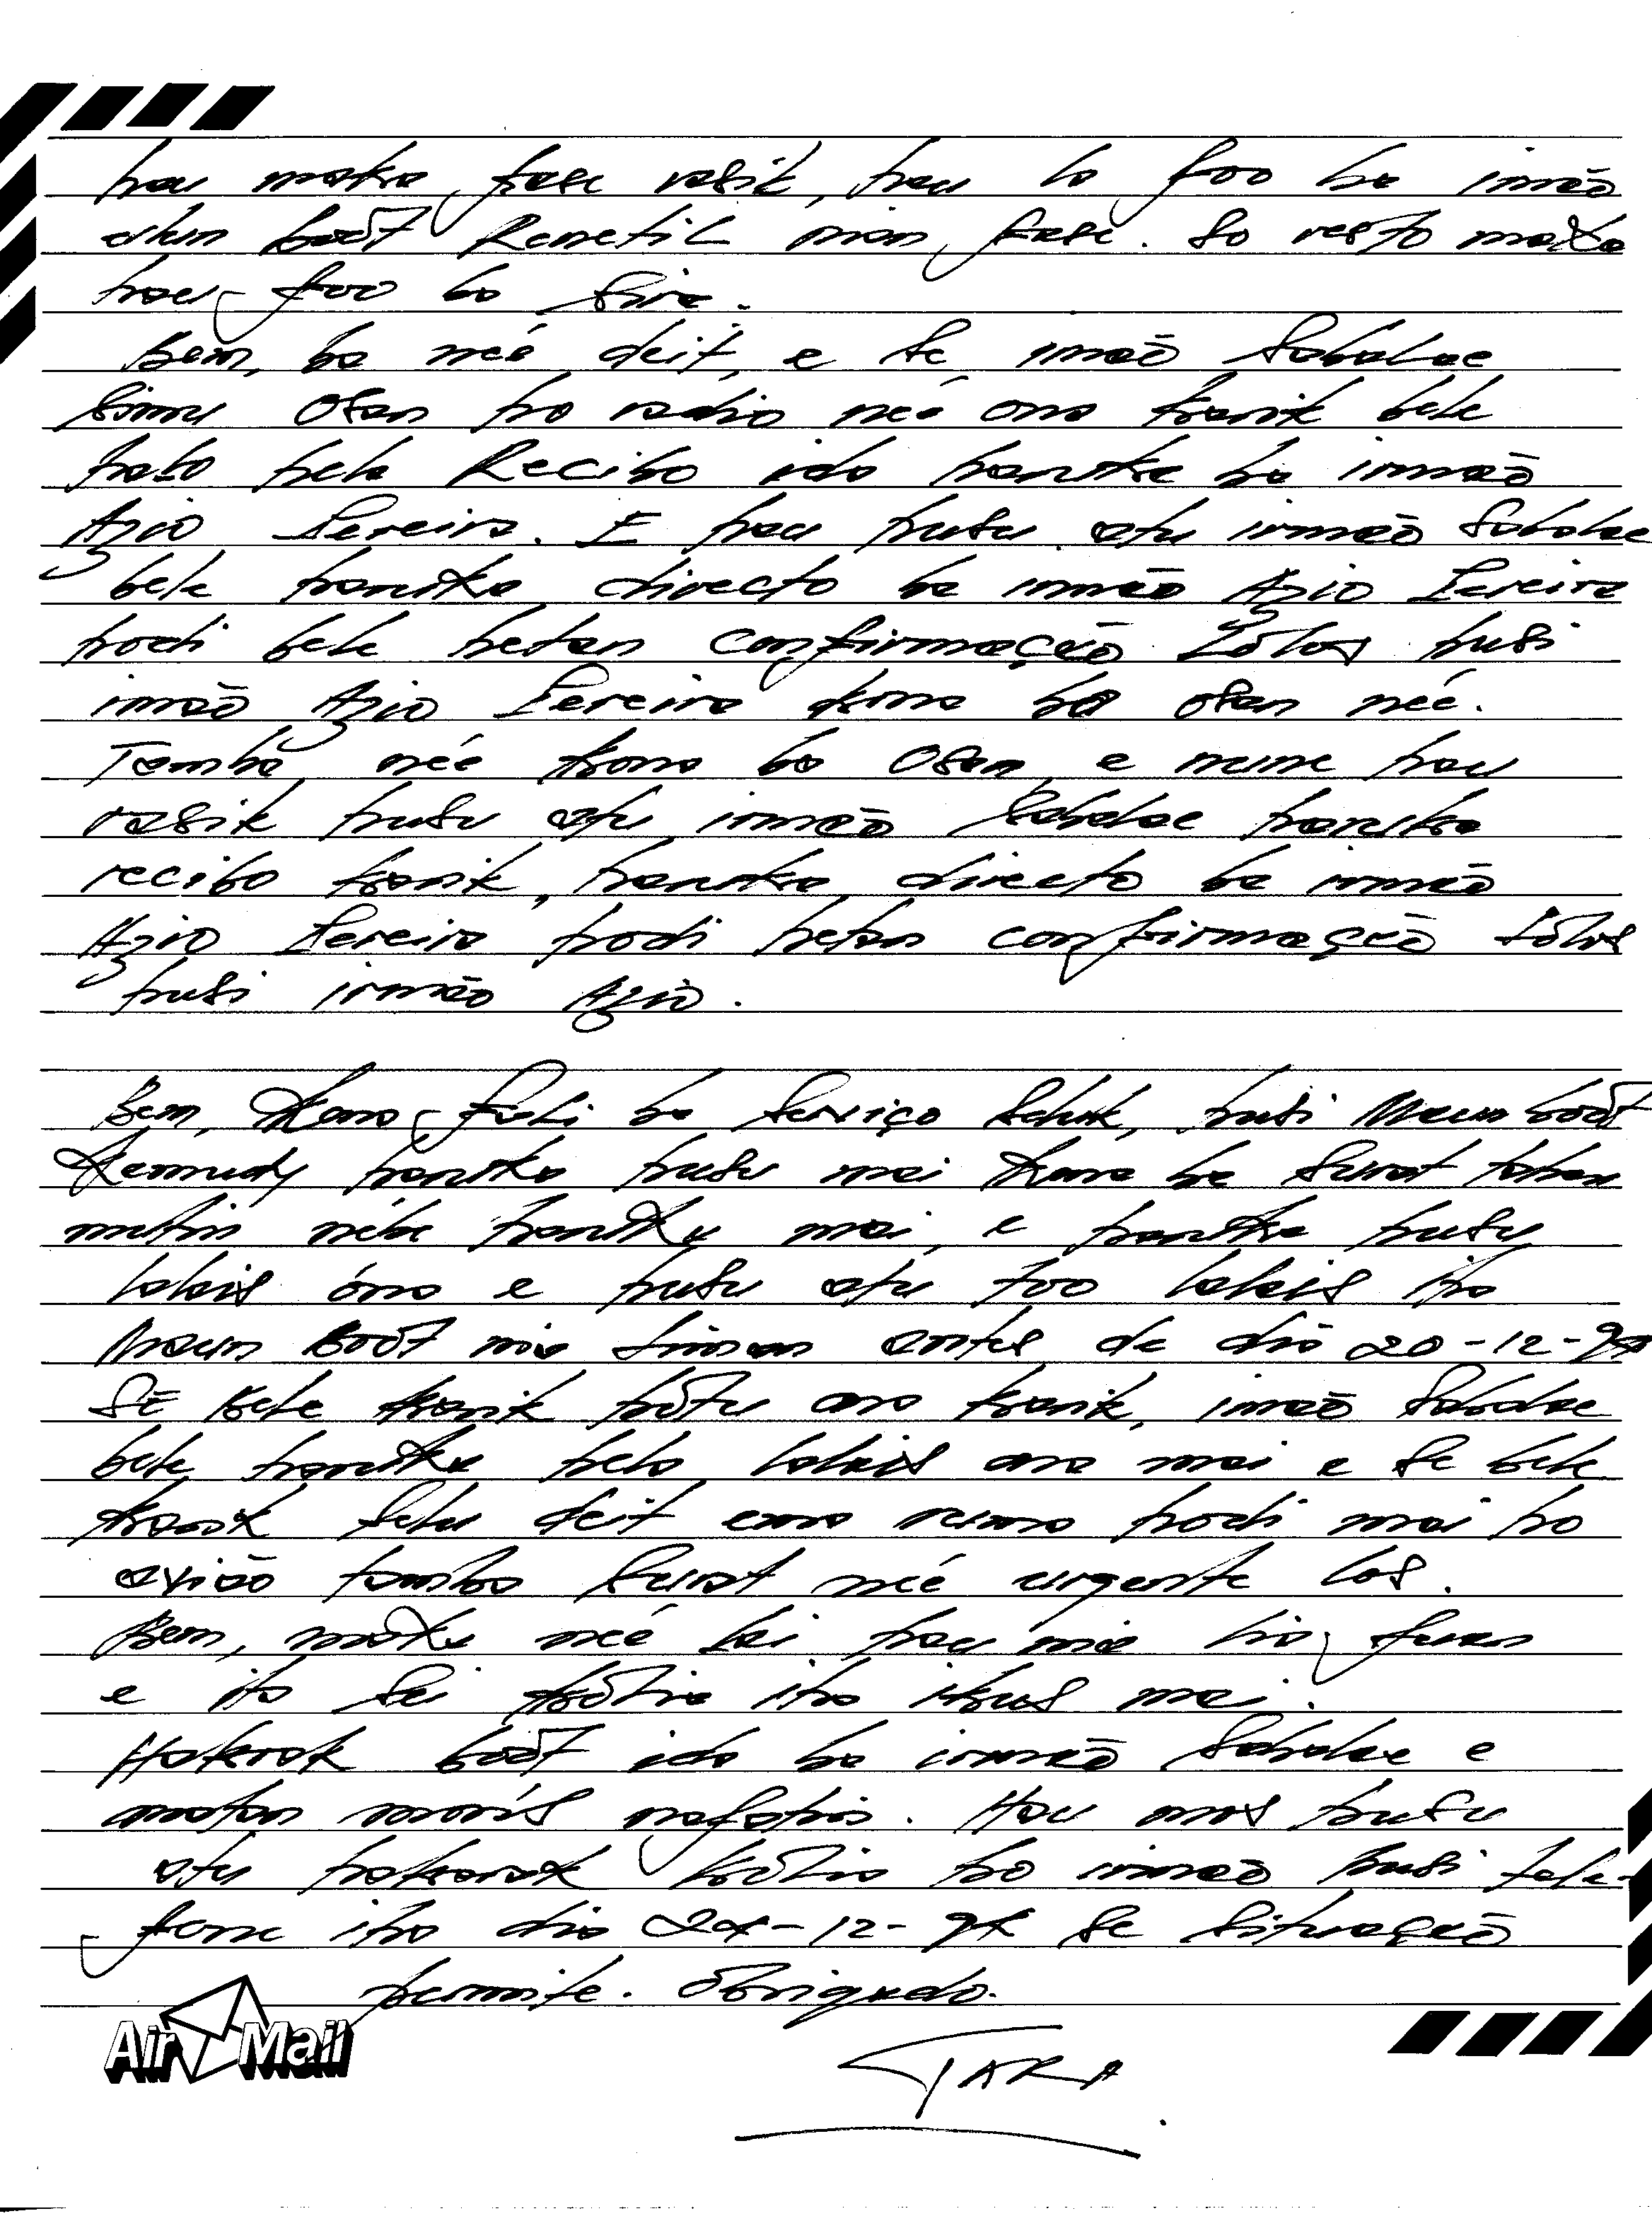 hau maka fase rasik, hau la foo ba irmão
ulun boõt Renetil nian, fase. So resto maka
hau foo ba sira.
Bem, ba neé deit, e se irmão Sabalae
simu osan ho radio neé ona karik bele
halo hela Recibo ida haruka ba irmão
Azio Pereira. E hau husu atu irmão Sabalae
bele haruka directo ba irmão Azio Pereira
hodi bele hetan confirmação lõlos husi
irmão Azio Pereira kona ba osan neé.
Tamba neé kona ba osan, e nune hau
rasik husu atu irmão Sabalae haruka
recibo karik, haruka directo ba irmão
Azio Pereira hodi hetan confirmação lõlos
husi irmão Azio.
Bem, kona fali ba serviço seluk, husi Maun boõt
haruka husu mai kona ba surat tahan
mutin nébe haruka mai, e haruka husu
lalais óna e husu atu foo lalais iha
Maun Boõt nia liman antes de dia 20-12-94
Se bele karik hõtu ona karik, irmão Sabalae
bele haruka hela lalais ona mai e se bele
karik selu deit ema ruma hodi mai ho
avião tamba surat neé urgente los.
Bem, maka neé lai hau nia lia fuan
e ita sei kõlia iha ikus mai.
Hakrak boõt ida ba irmão Sabalae e
matan moris nafatin. Hau mos husu
atu hakarak kõlia ho irmão husi tele-
fone iha dia 24-12-94 se situação
permite. Obrigado.
GARA
Air Mail